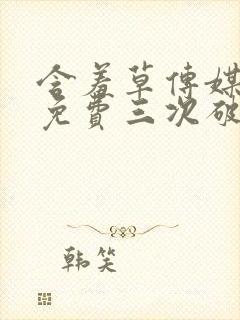 含羞草传媒
免費三次破
韩笑